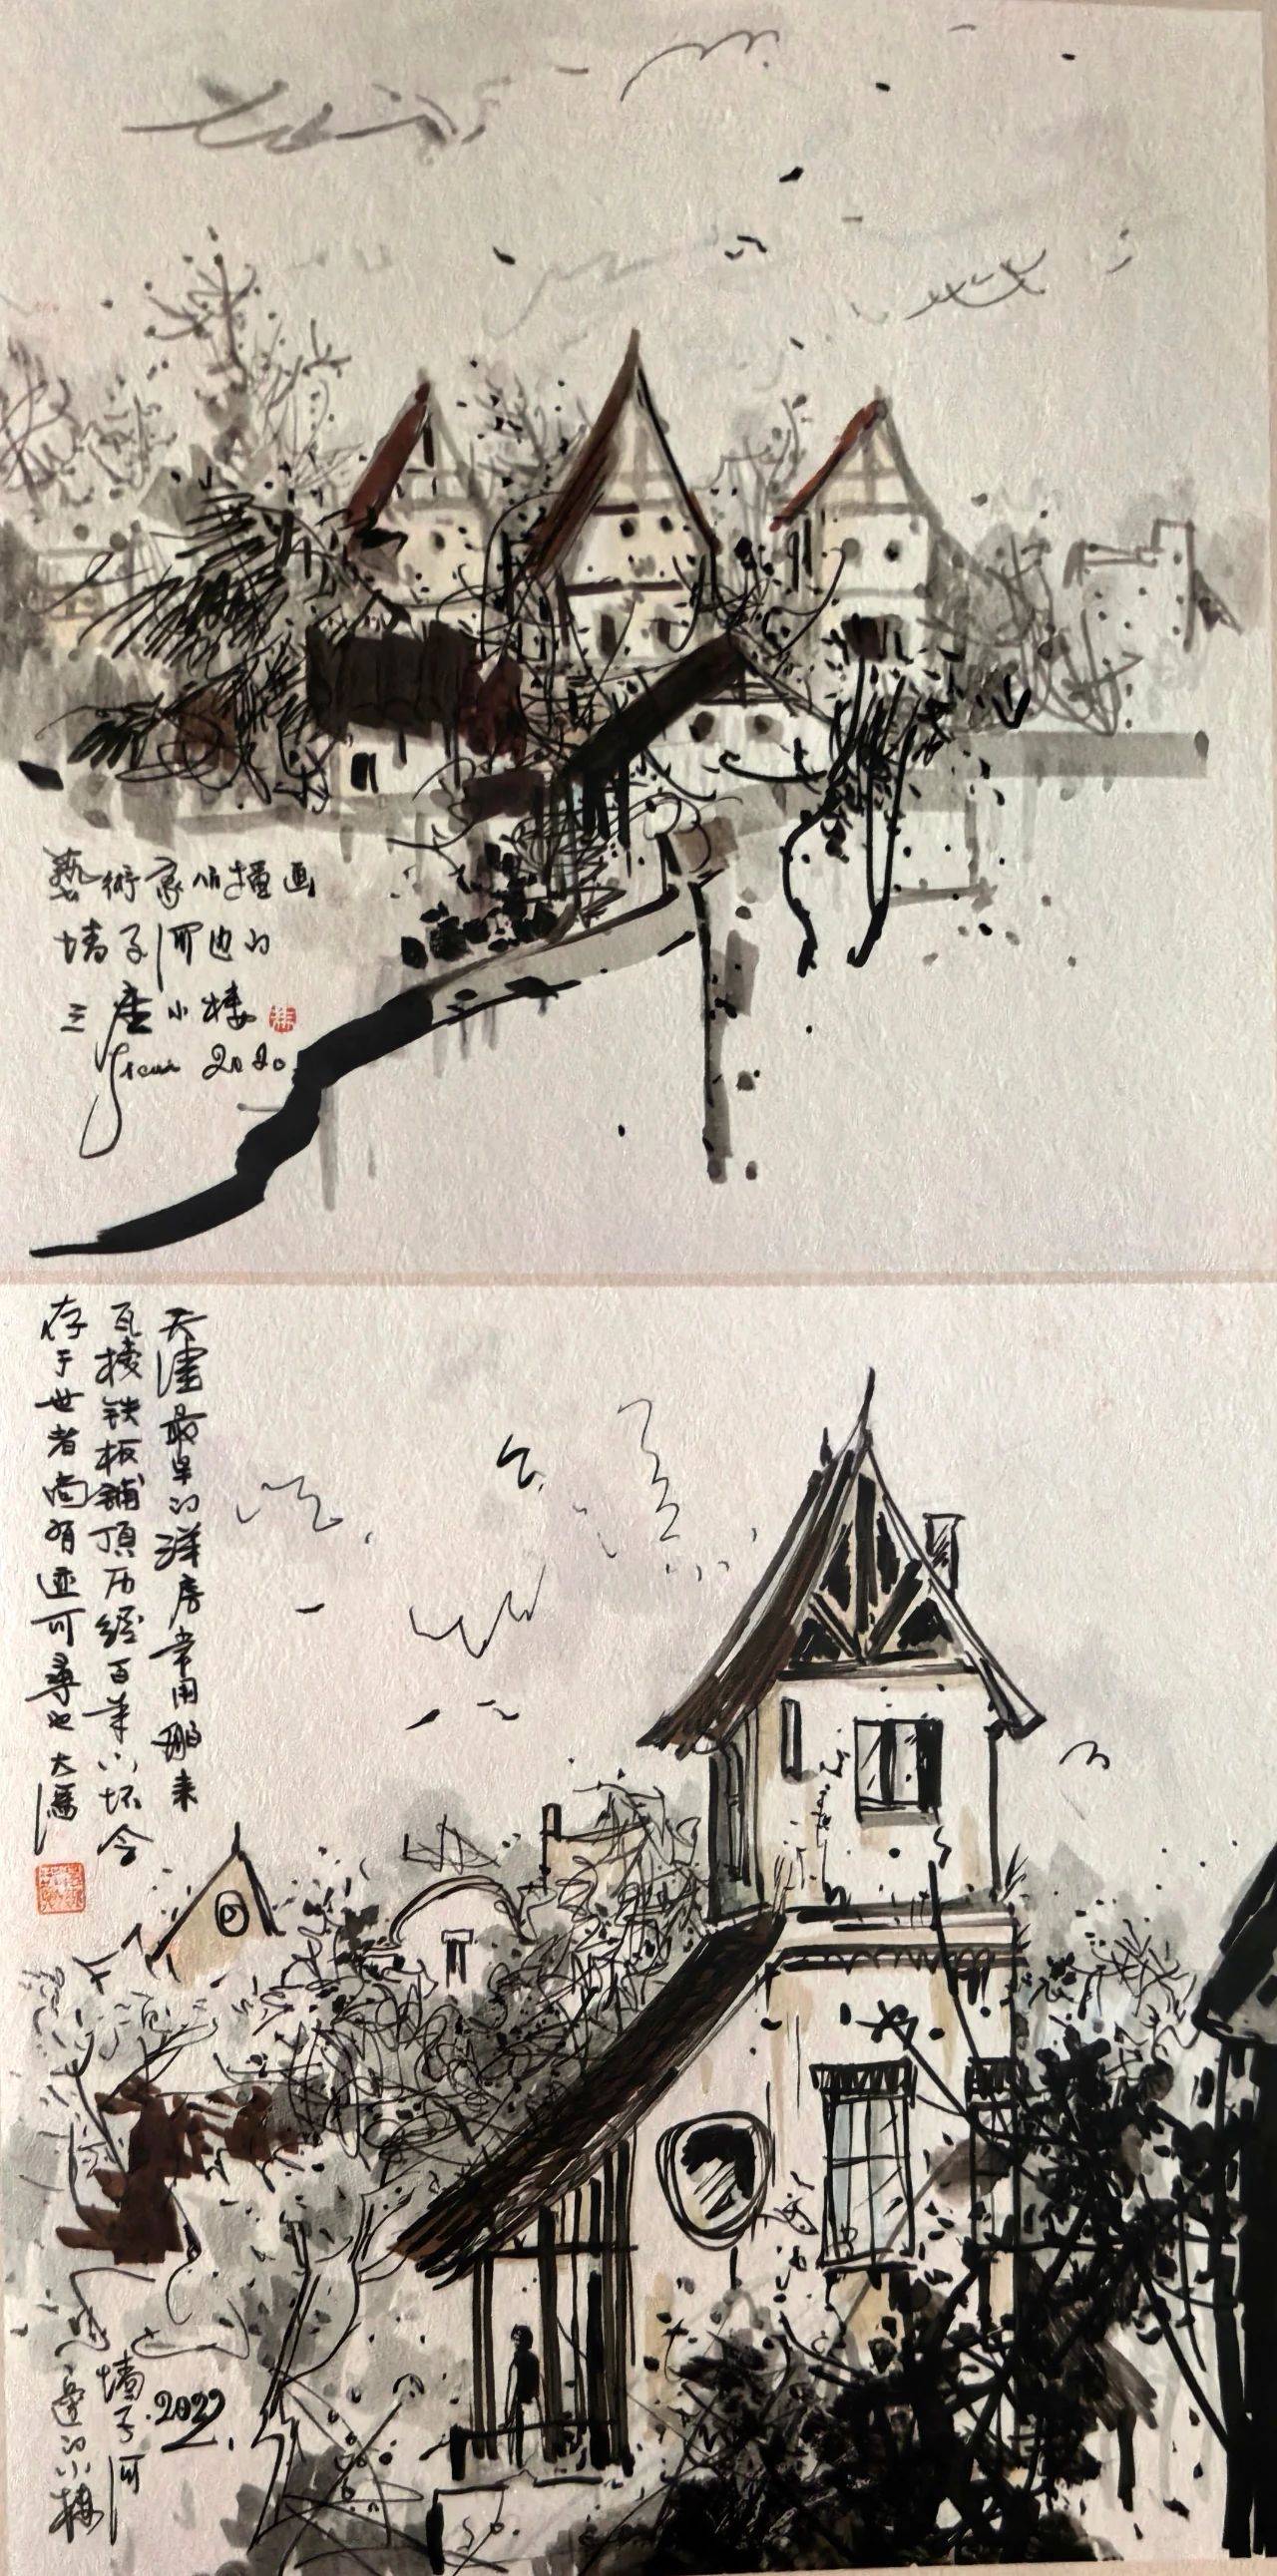 藝術家所擅画
墙子河边的
三座小楼
2020
天津最早的洋房常用舶来
瓦楞铁板铺頂历经百年不坏今
存于世者尚有迹可尋也大馮
墙子河
邊的小楼
2022.